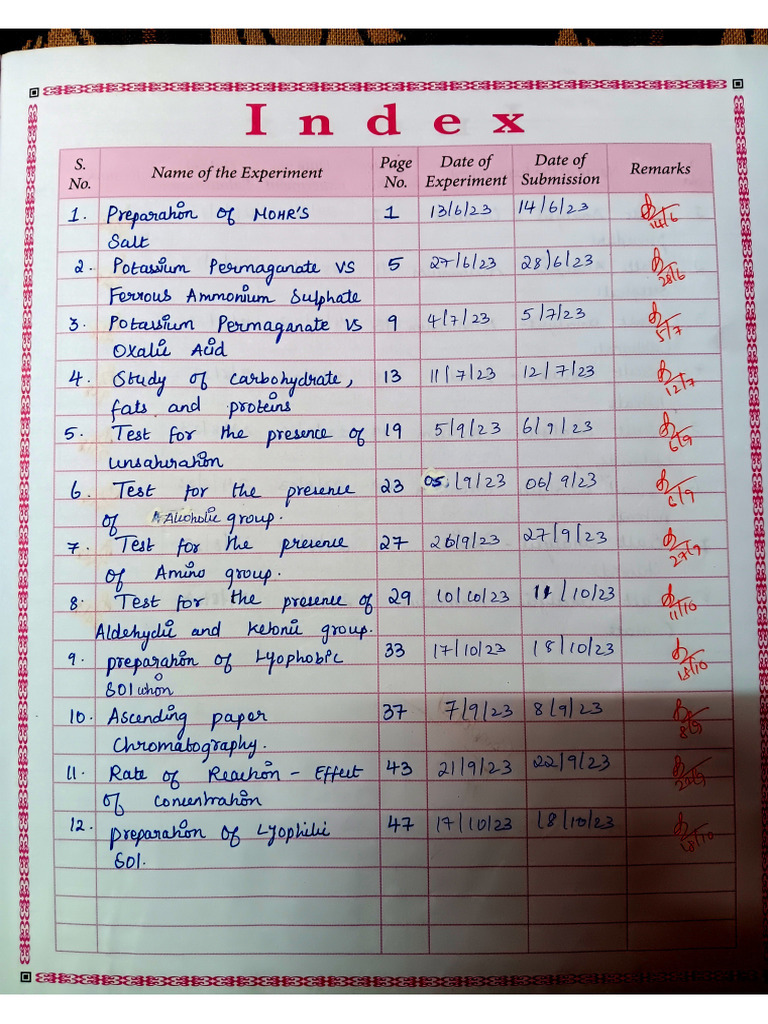 Index
S. No. Name of the Experiment Page No. Date of Experiment Date of Submission Remarks
1. Preparation of MOHR'S 1 13/6/23 14/6/23 14/6
Salt
2. Potassium Permaganate VS 5 27/6/23 28/6/23 28/6
Ferrous Ammonium Sulphate
3. Potassium Permaganate VS 9 4/7/23 5/7/23 5/7
Oxalic Acid
4. Study of carbohydrate, 13 11/7/23 12/7/23 12/7
fats and proteins
5. Test for the presence of 19 5/9/23 6/9/23 6/9
unsaturation
6. Test for the presence 23 05/9/23 06/9/23 6/9
of Alcoholic group.
7. Test for the presence 27 26/9/23 27/9/23 27/9
of Amino group.
8. Test for the presence of 29 10/10/23 11/10/23 11/10
Aldehydic and Ketonic group.
9. preparation of Lyophobic 33 17/10/23 18/10/23 18/10
Solution
10. Ascending paper 37 7/9/23 8/9/23 8/9
Chromatography.
11. Rate of Reaction - Effect 43 21/9/23 22/9/23 22/9
of concentration
12. preparation of Lyophilic 47 17/10/23 18/10/23 18/10
Sol.